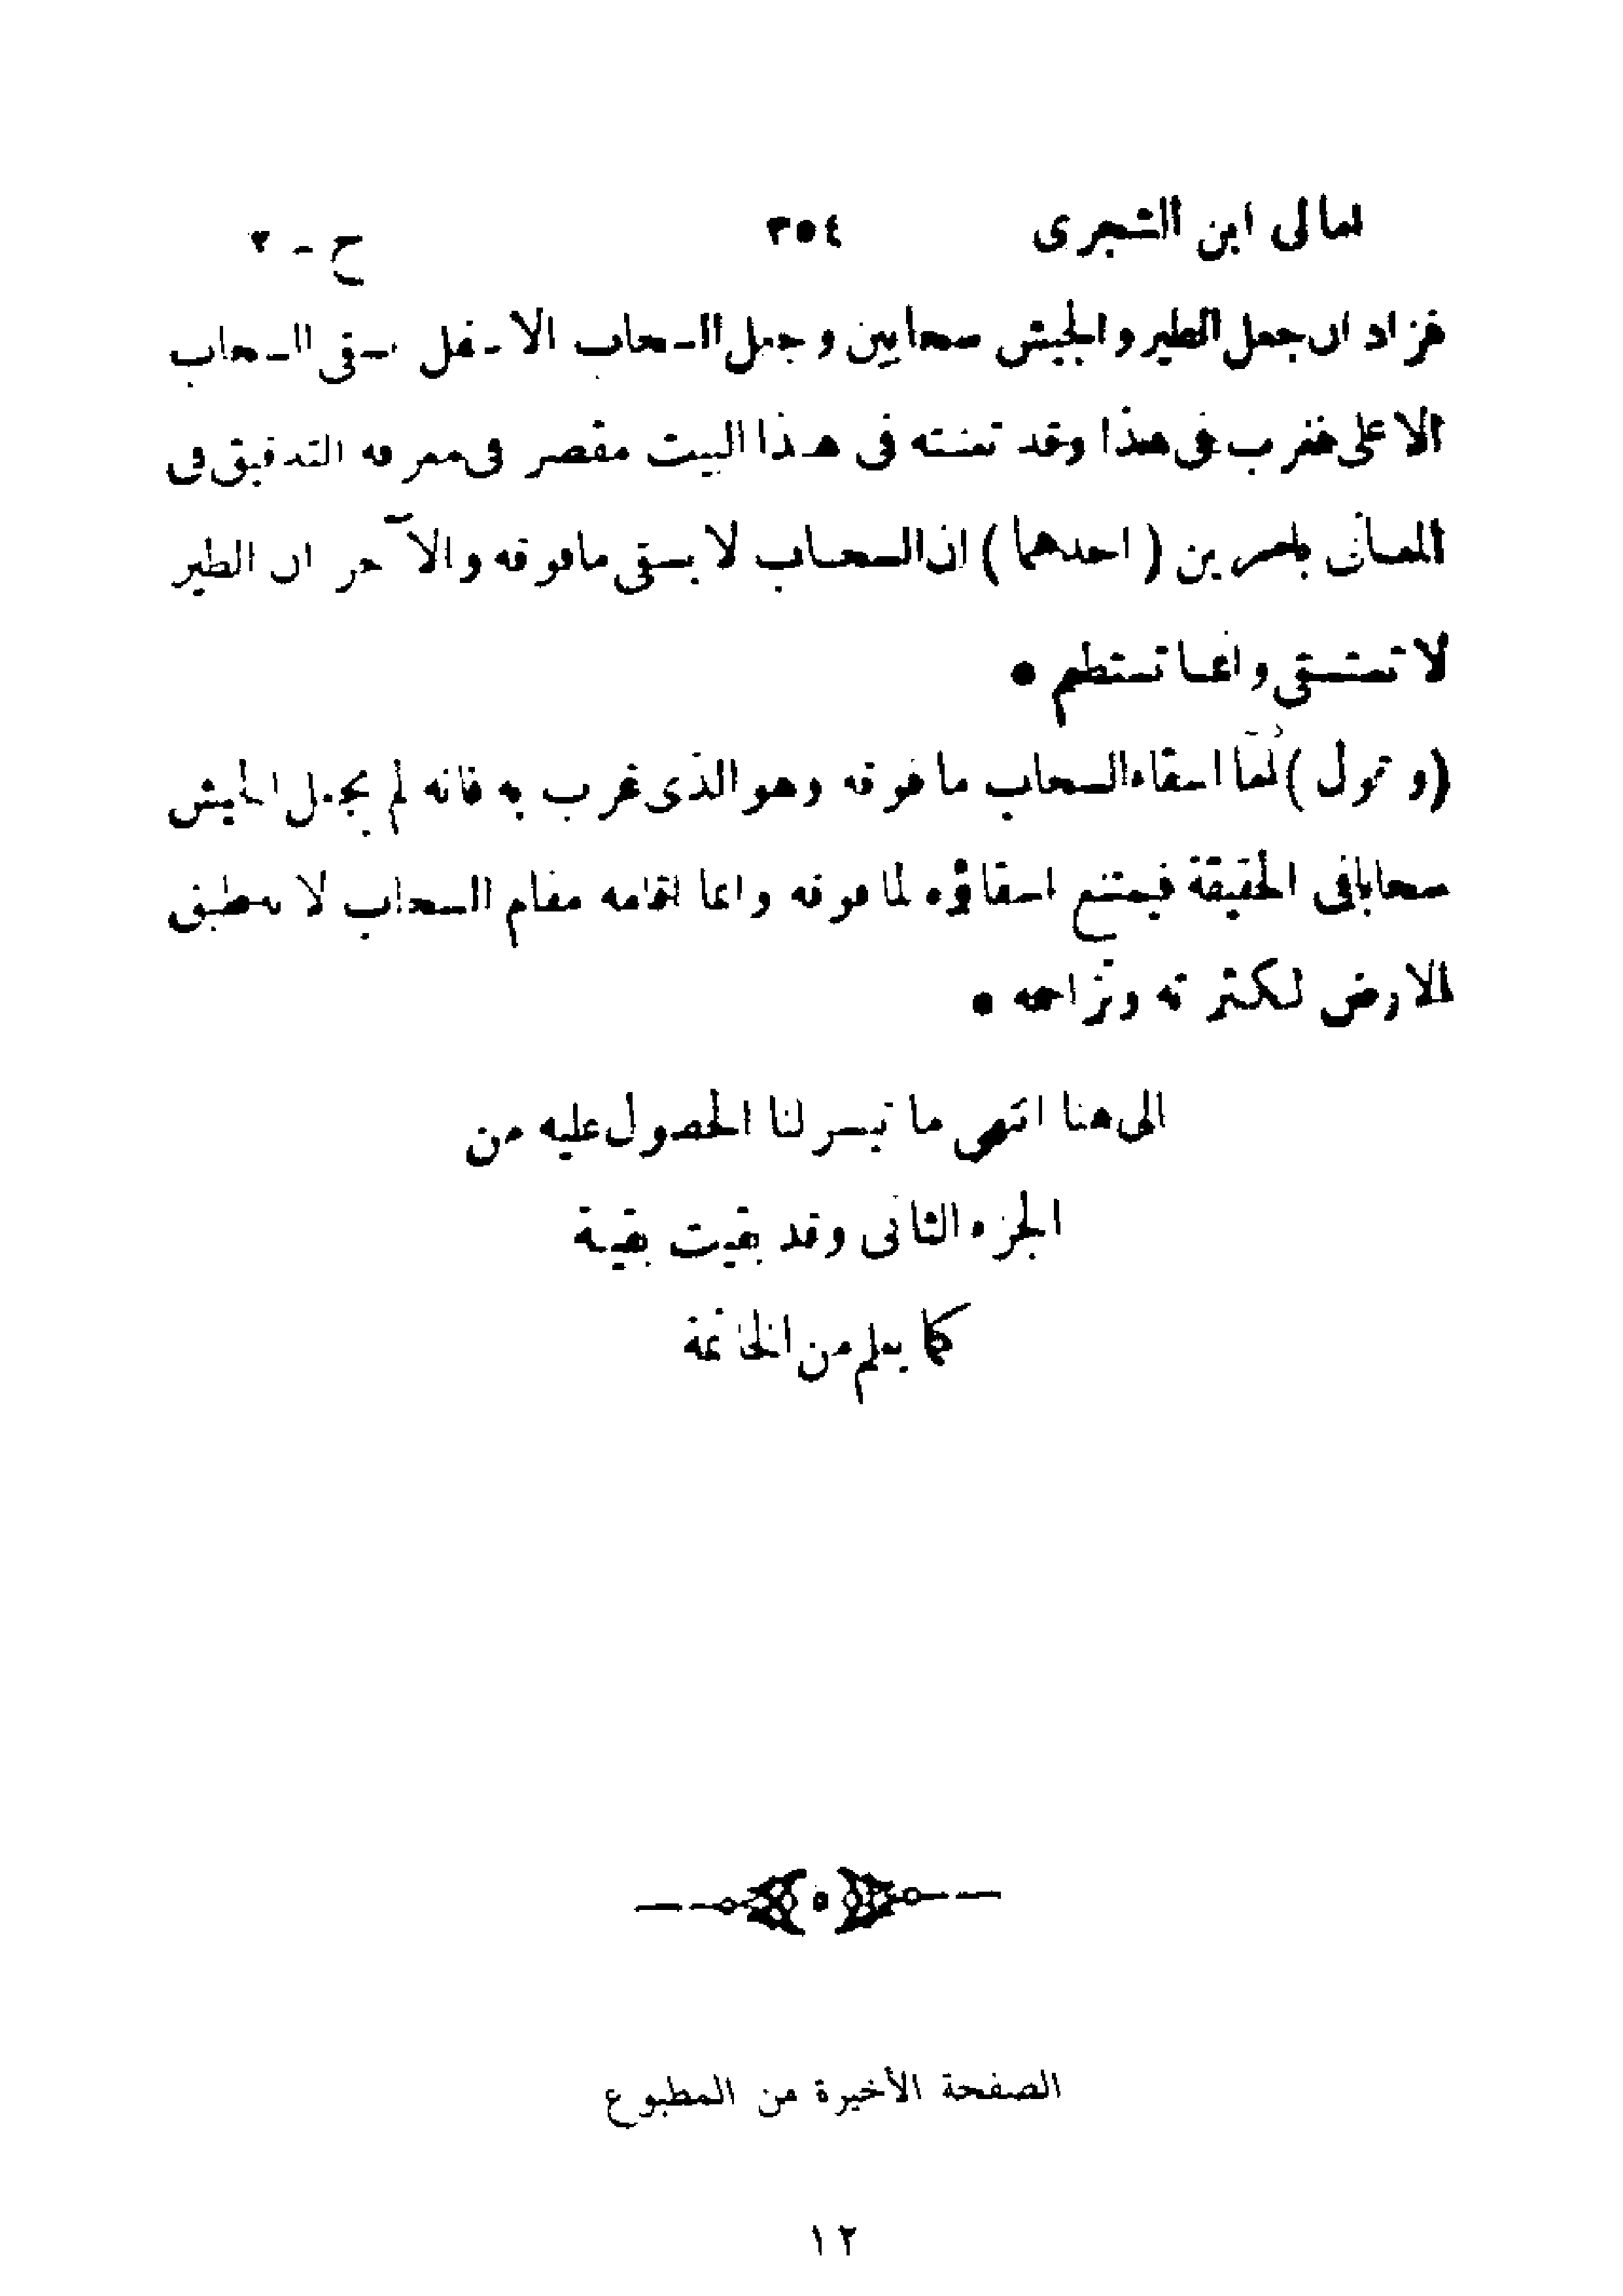 امالى ابن الشجرى ٣٥٤ ج - ٢
فزاد ان جعل الطير والجيش سحابين وجعل السحاب الاسفل يسقى السحاب
الاعلى فغرب فى هذا وقد تعنته فى هذا البيت مقصر فى معرفه التدقيق فى
المعانى بامرين (احدهما) ان السحاب لا يسقى مافوقه والآخر ان الطير
لا تستسقى وانما تستطعم •
(ونقول) امّا اسقاء السحاب ما فوقه وهو الذى غرب به فانه لم يجعل الجيش
سحابا فى الحقيقة فيمتنع اسقاؤه لما فوقه وانما اقامه مقام السحاب لا نه طبق
الارض لكثر ته وتزاحمه •
الى هنا انتهى ما تيسر لنا الحصول عليه من
الجزء الثانى وقد بقيت بقية
كما يعلم من الخاتمة
الصفحة الأخيرة من المطبوع
١٢